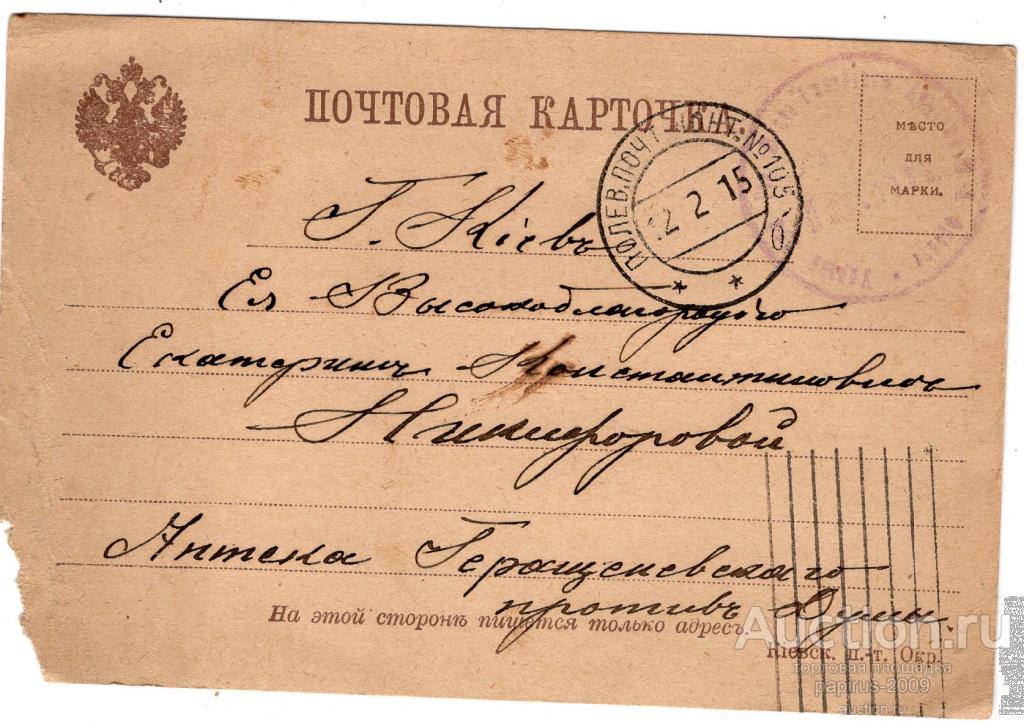 ПОЧТОВАЯ КАРТОЧКА
МѢСТО
ДЛЯ
МАРКИ.
ПОЛЕВ. ПОЧТ. КОНТ. №105
12 2 15
Г. Кіевъ
Ея Высокоблагородію
Екатеринѣ Константиновнѣ
Никифоровой
Аптека Геращеневскаго
противъ Думы.
На этой сторонѣ пишется только адресъ.
Кіевск. п.-т. Окр.
Auction.ru
торговая площадка
papirus-2009
auction.ru